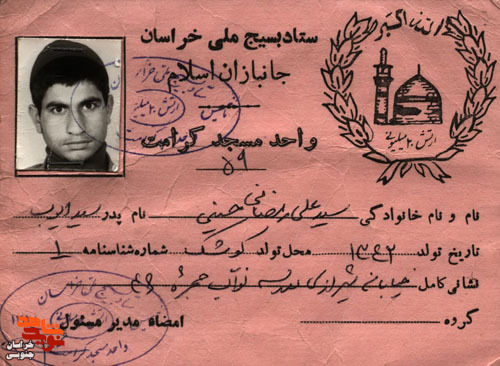 الله اکبر
ستاد بسیج ملی خراسان
جانبازان اسلام
ارتش ۲۰ میلیونی
واحد مسجد کرامت
۵۹
نام و نام خانوادگی سید علیرضا حسینی نام پدر سید
تاریخ تولد ۱۳۴۲ محل تولد کوشک شماره شناسنامه ۱
نشانی کامل خیابانی شیرازی مدرسه نواب حجره ۴۹
گروه امضاء مدیر مسئول
واحد مسجد کرامت
خراسان
جنوبی